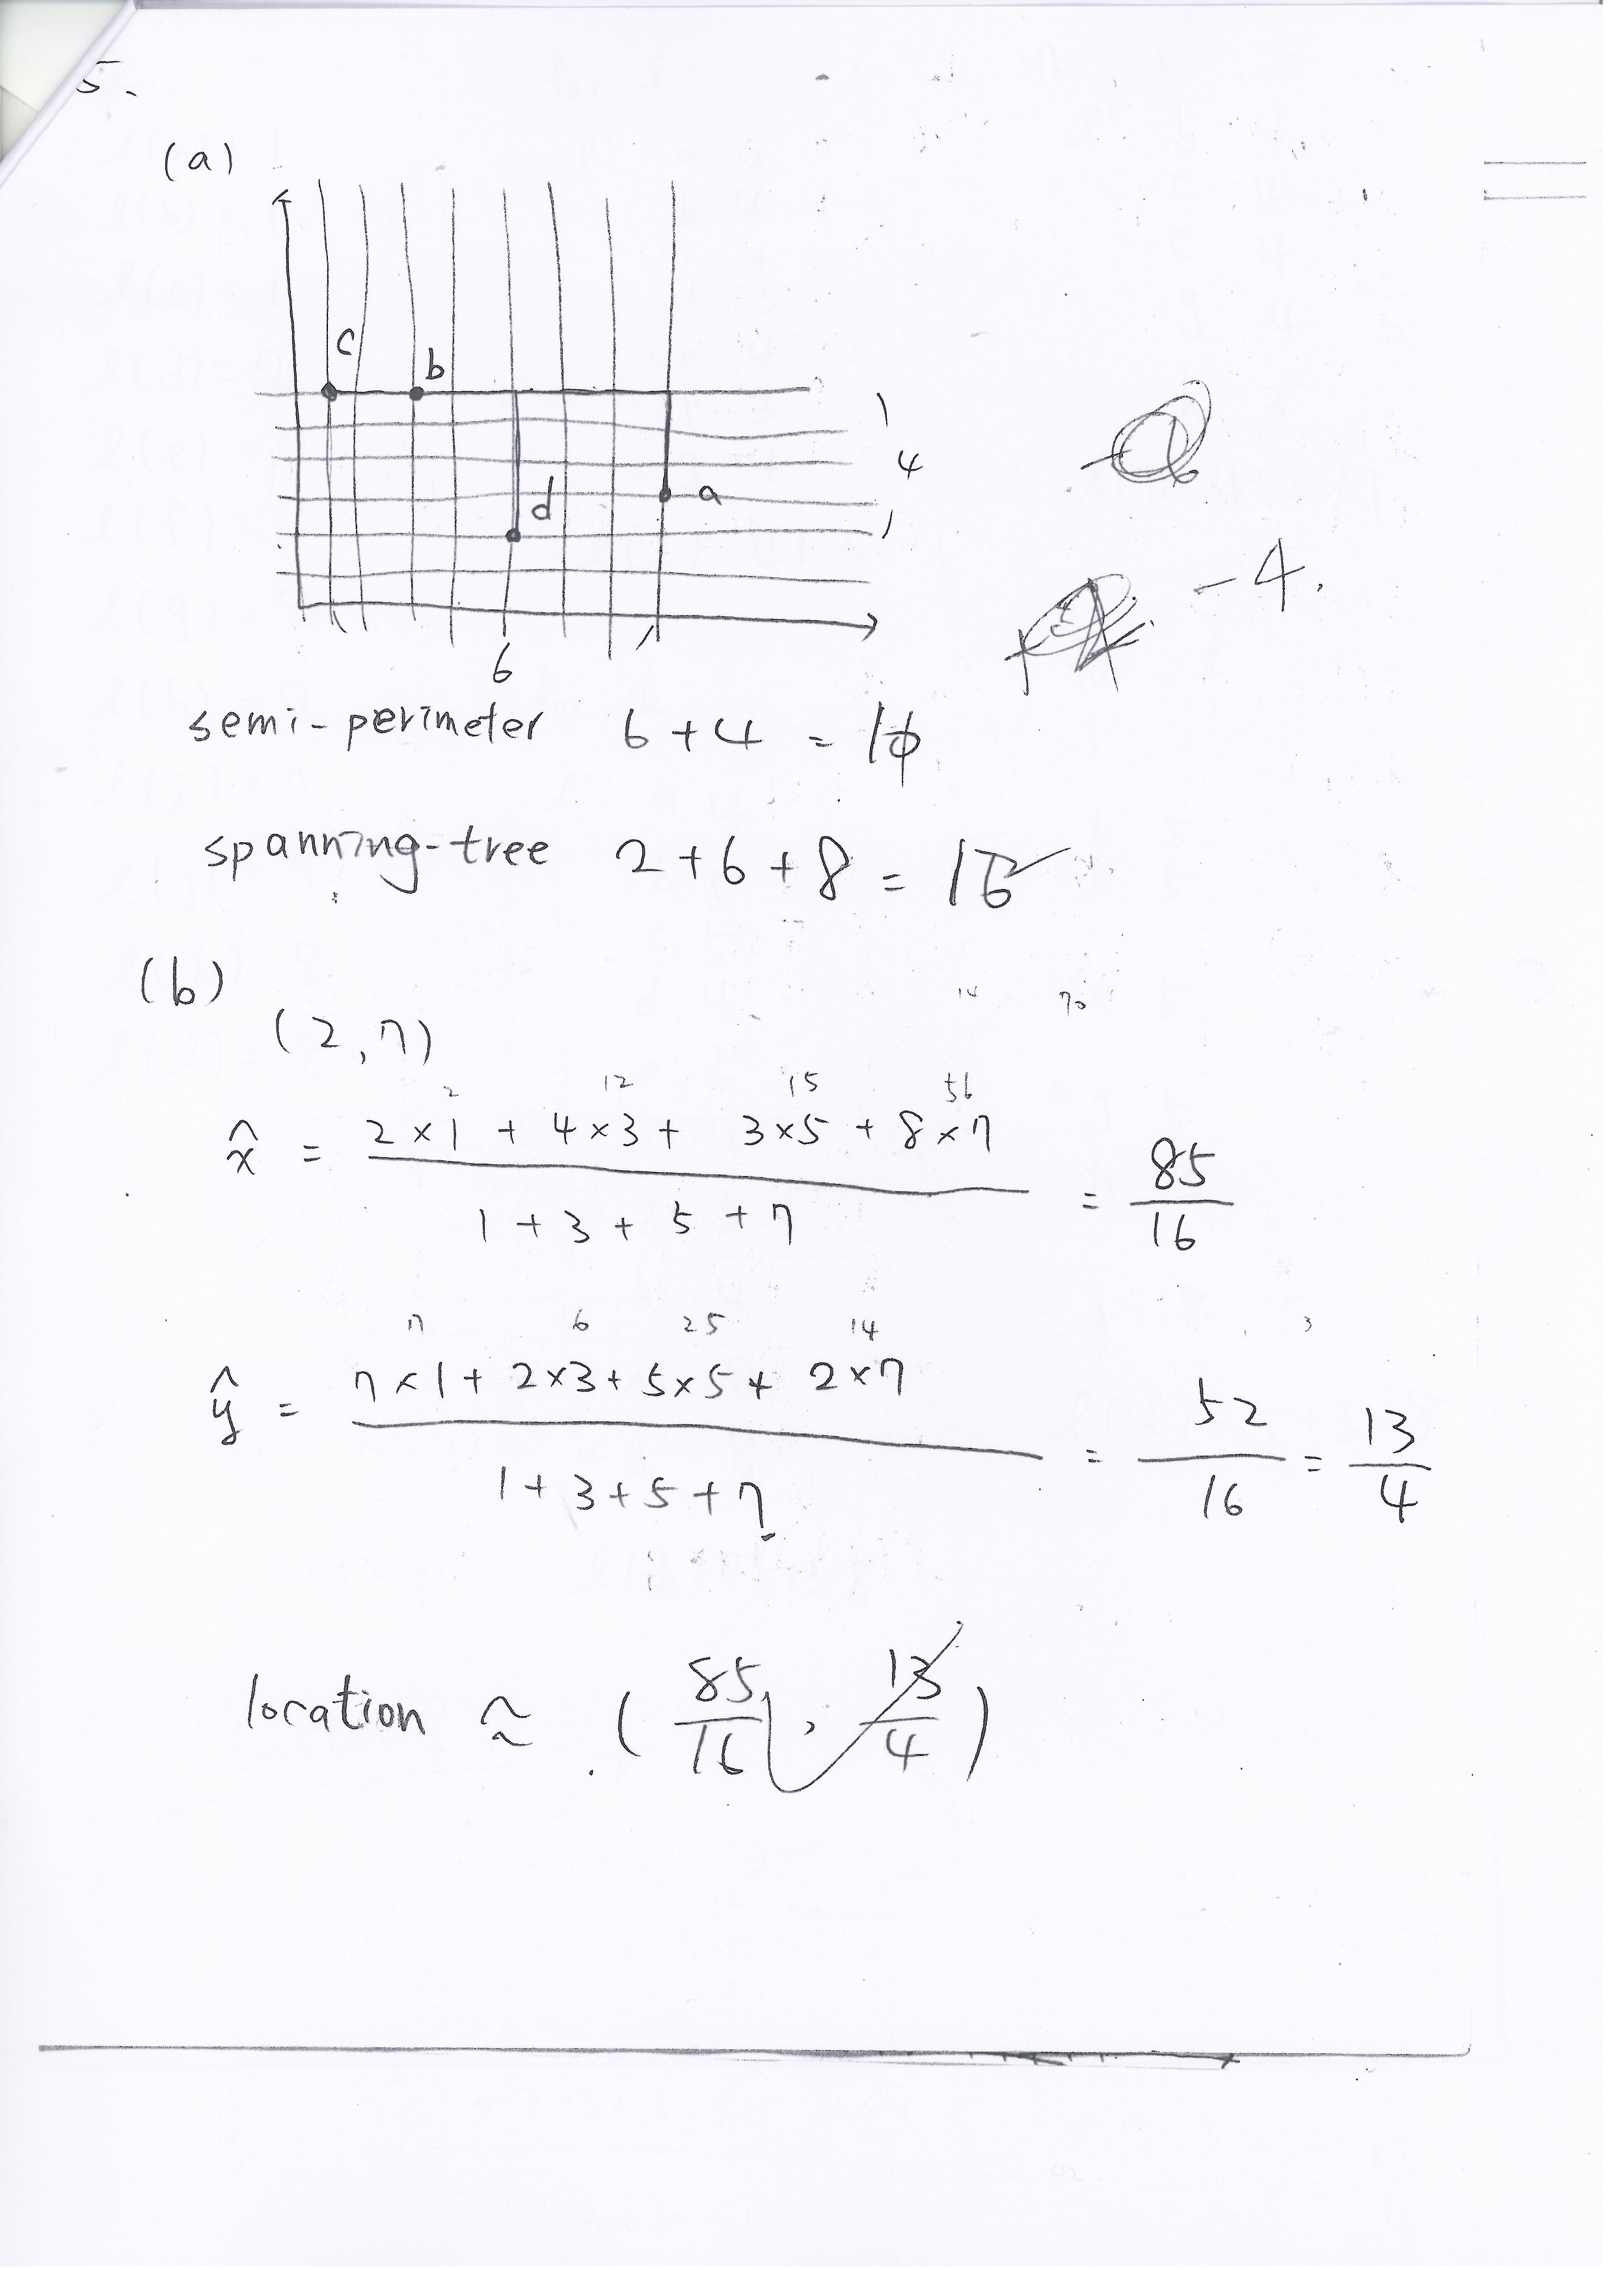 5.
(a)
c
b
1
4
d
a
1
-4.
6
semi-perimeter 6+4 = 10
spanning-tree 2+6+8 = 16
(b)
14 70
(2,7)
2 12 15 56
x̂ = (2×1 + 4×3 + 3×5 + 8×7) / (1+3+5+7) = 85/16
7 6 25 14
ŷ = (7×1 + 2×3 + 5×5 + 2×7) / (1+3+5+7) = 52/16 = 13/4
location ≈ (85/16, 13/4)